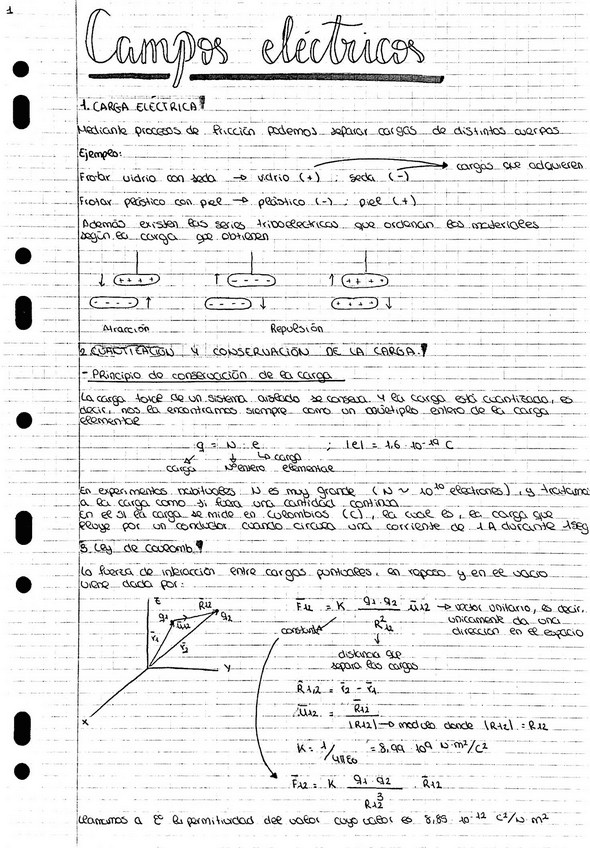 1
Campos eléctricos
1. CARGA ELÉCTRICA
Mediante procesos de fricción podemos separar cargas de distintos cuerpos
Ejemplo:
cargas que adquieren
Frotar vidrio con seda → vidrio (+) ; seda (-)
Frotar plástico con piel → plástico (-) ; piel (+)
Además existen las series triboeléctricas que ordenan los materiales
según la carga que obtienen
+ + + + - - - - + + + +
- - - - - - - - + + + +
Atracción Repulsión
2. CUANTIZACIÓN Y CONSERVACIÓN DE LA CARGA.
- Principio de conservación de la carga
La carga total de un sistema aislado se conserva. Y la carga está cuantizada, es
decir, nos la encontramos siempre como un múltiplo entero de la carga
elemental
q = N · e ; |e| = 1,6 · 10⁻¹⁹ C
carga Nº entero carga elemental
En experimentos habituales N es muy grande (N ~ 10¹⁰ electrones), y tratamos
a la carga como si fuera una cantidad continua.
En el SI la carga se mide en Culombios (C), la cual es, la carga que
fluye por un conductor cuando circula una corriente de 1A durante 1seg
3. Ley de coulomb.
La fuerza de interacción entre cargas puntuales, en reposo y en el vacío
viene dada por:
z q1 ū12 R̄12 q2 r̄1 r̄2 Y X
F̄12 = K q1 · q2 / R²12 ū12 → vector unitario, es decir,
únicamente da una
dirección en el espacio
constante
distancia que
separa las cargas
R̄1,2 = r̄2 - r̄1
ū12 = R̄12 / |R12| → modulo donde |R12| = R12
K = 1/4πε0 = 8,99 · 10⁹ N·m²/C²
F̄12 = K q1 · q2 / R12³ · R̄12
Llamamos a ε⁰ la permitividad del vacío cuyo valor es 8,85 · 10⁻¹² C²/N m²